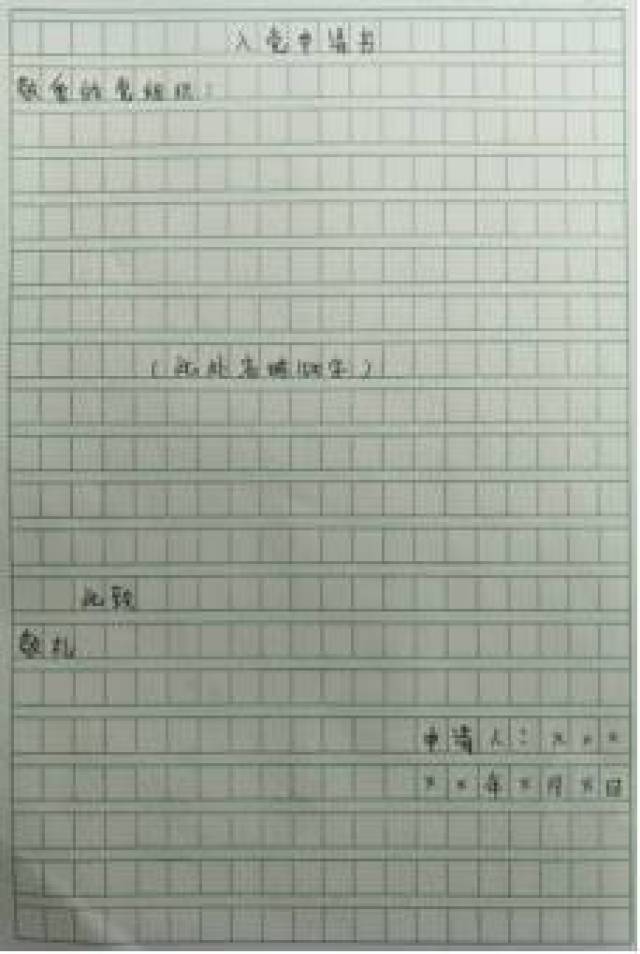 入党申请书
敬爱的党组织：
（此处省略1500字）
此致
敬礼
申请人：×××
××年×月×日